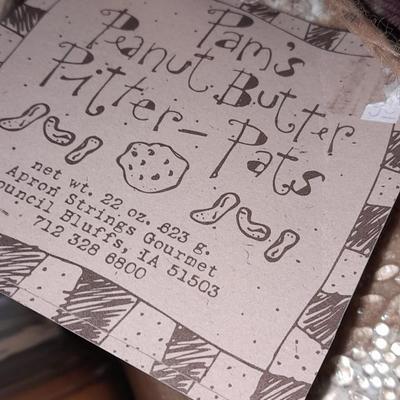 Pam's
Peanut Butter
Pitter-Pats
net wt. 22 oz. 623 g.
Apron Strings Gourmet
Council Bluffs, IA 51503
712 328 6800